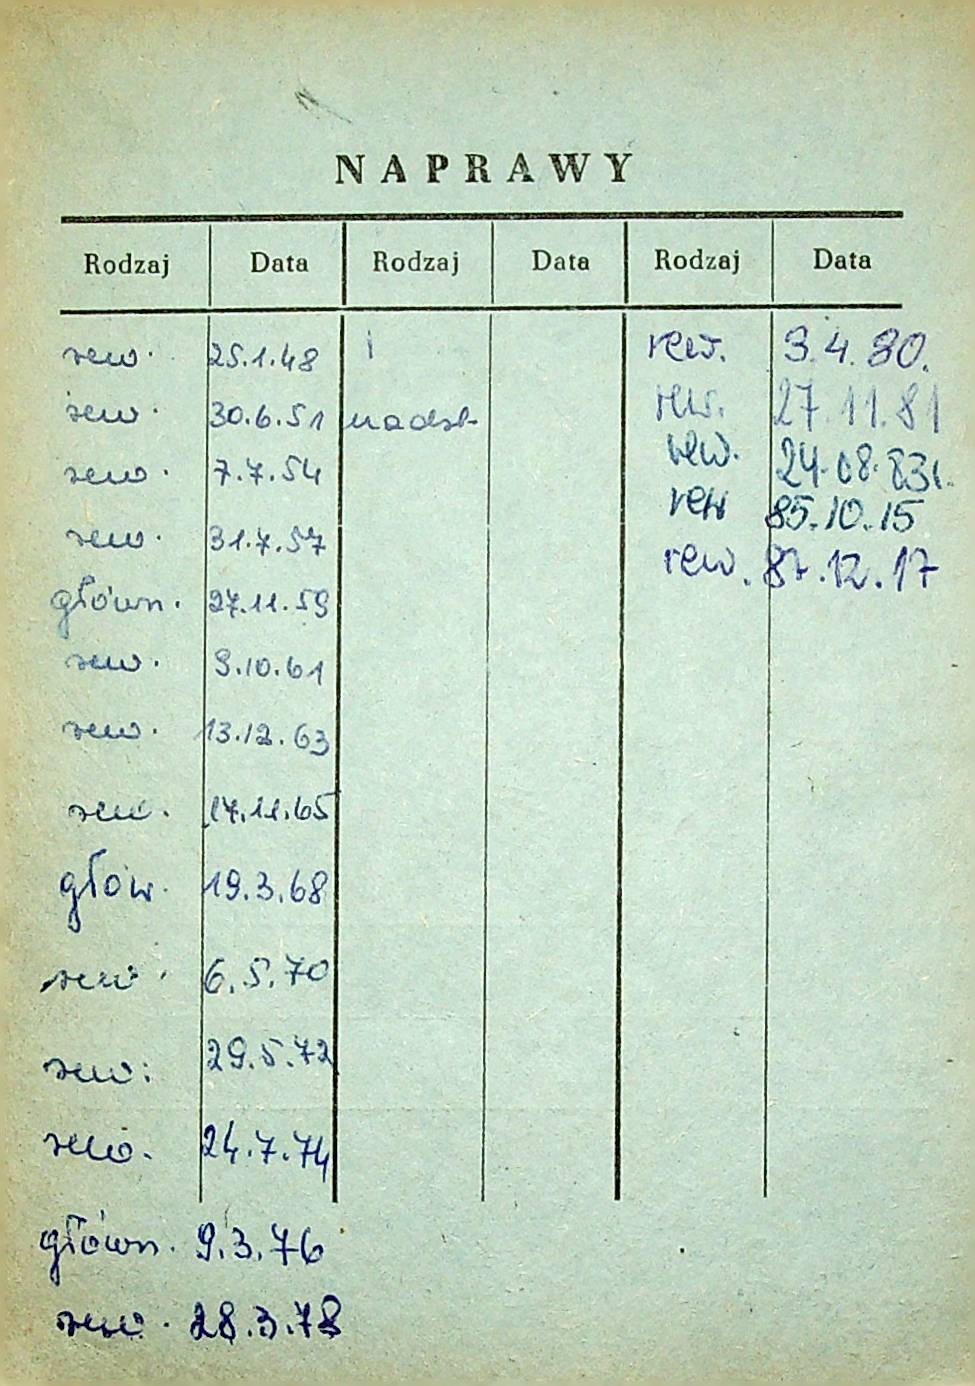 NAPRAWY
Rodzaj Data Rodzaj Data Rodzaj Data
rew. 25.1.48 rew. 9.4.80.
rew. 30.6.51 nadst rew. 27.11.81
rew. 7.7.54 rew. 24.08.83r.
rew. 31.7.57 rew 85.10.15
główn. 27.11.59 rew. 87.12.17
rew. 9.10.61
rew. 13.12.63
rew. 17.11.65
głów. 19.3.68
rew. 6.5.70
rew. 29.5.72
rew. 24.7.74
główn. 9.3.76
rew. 28.3.78